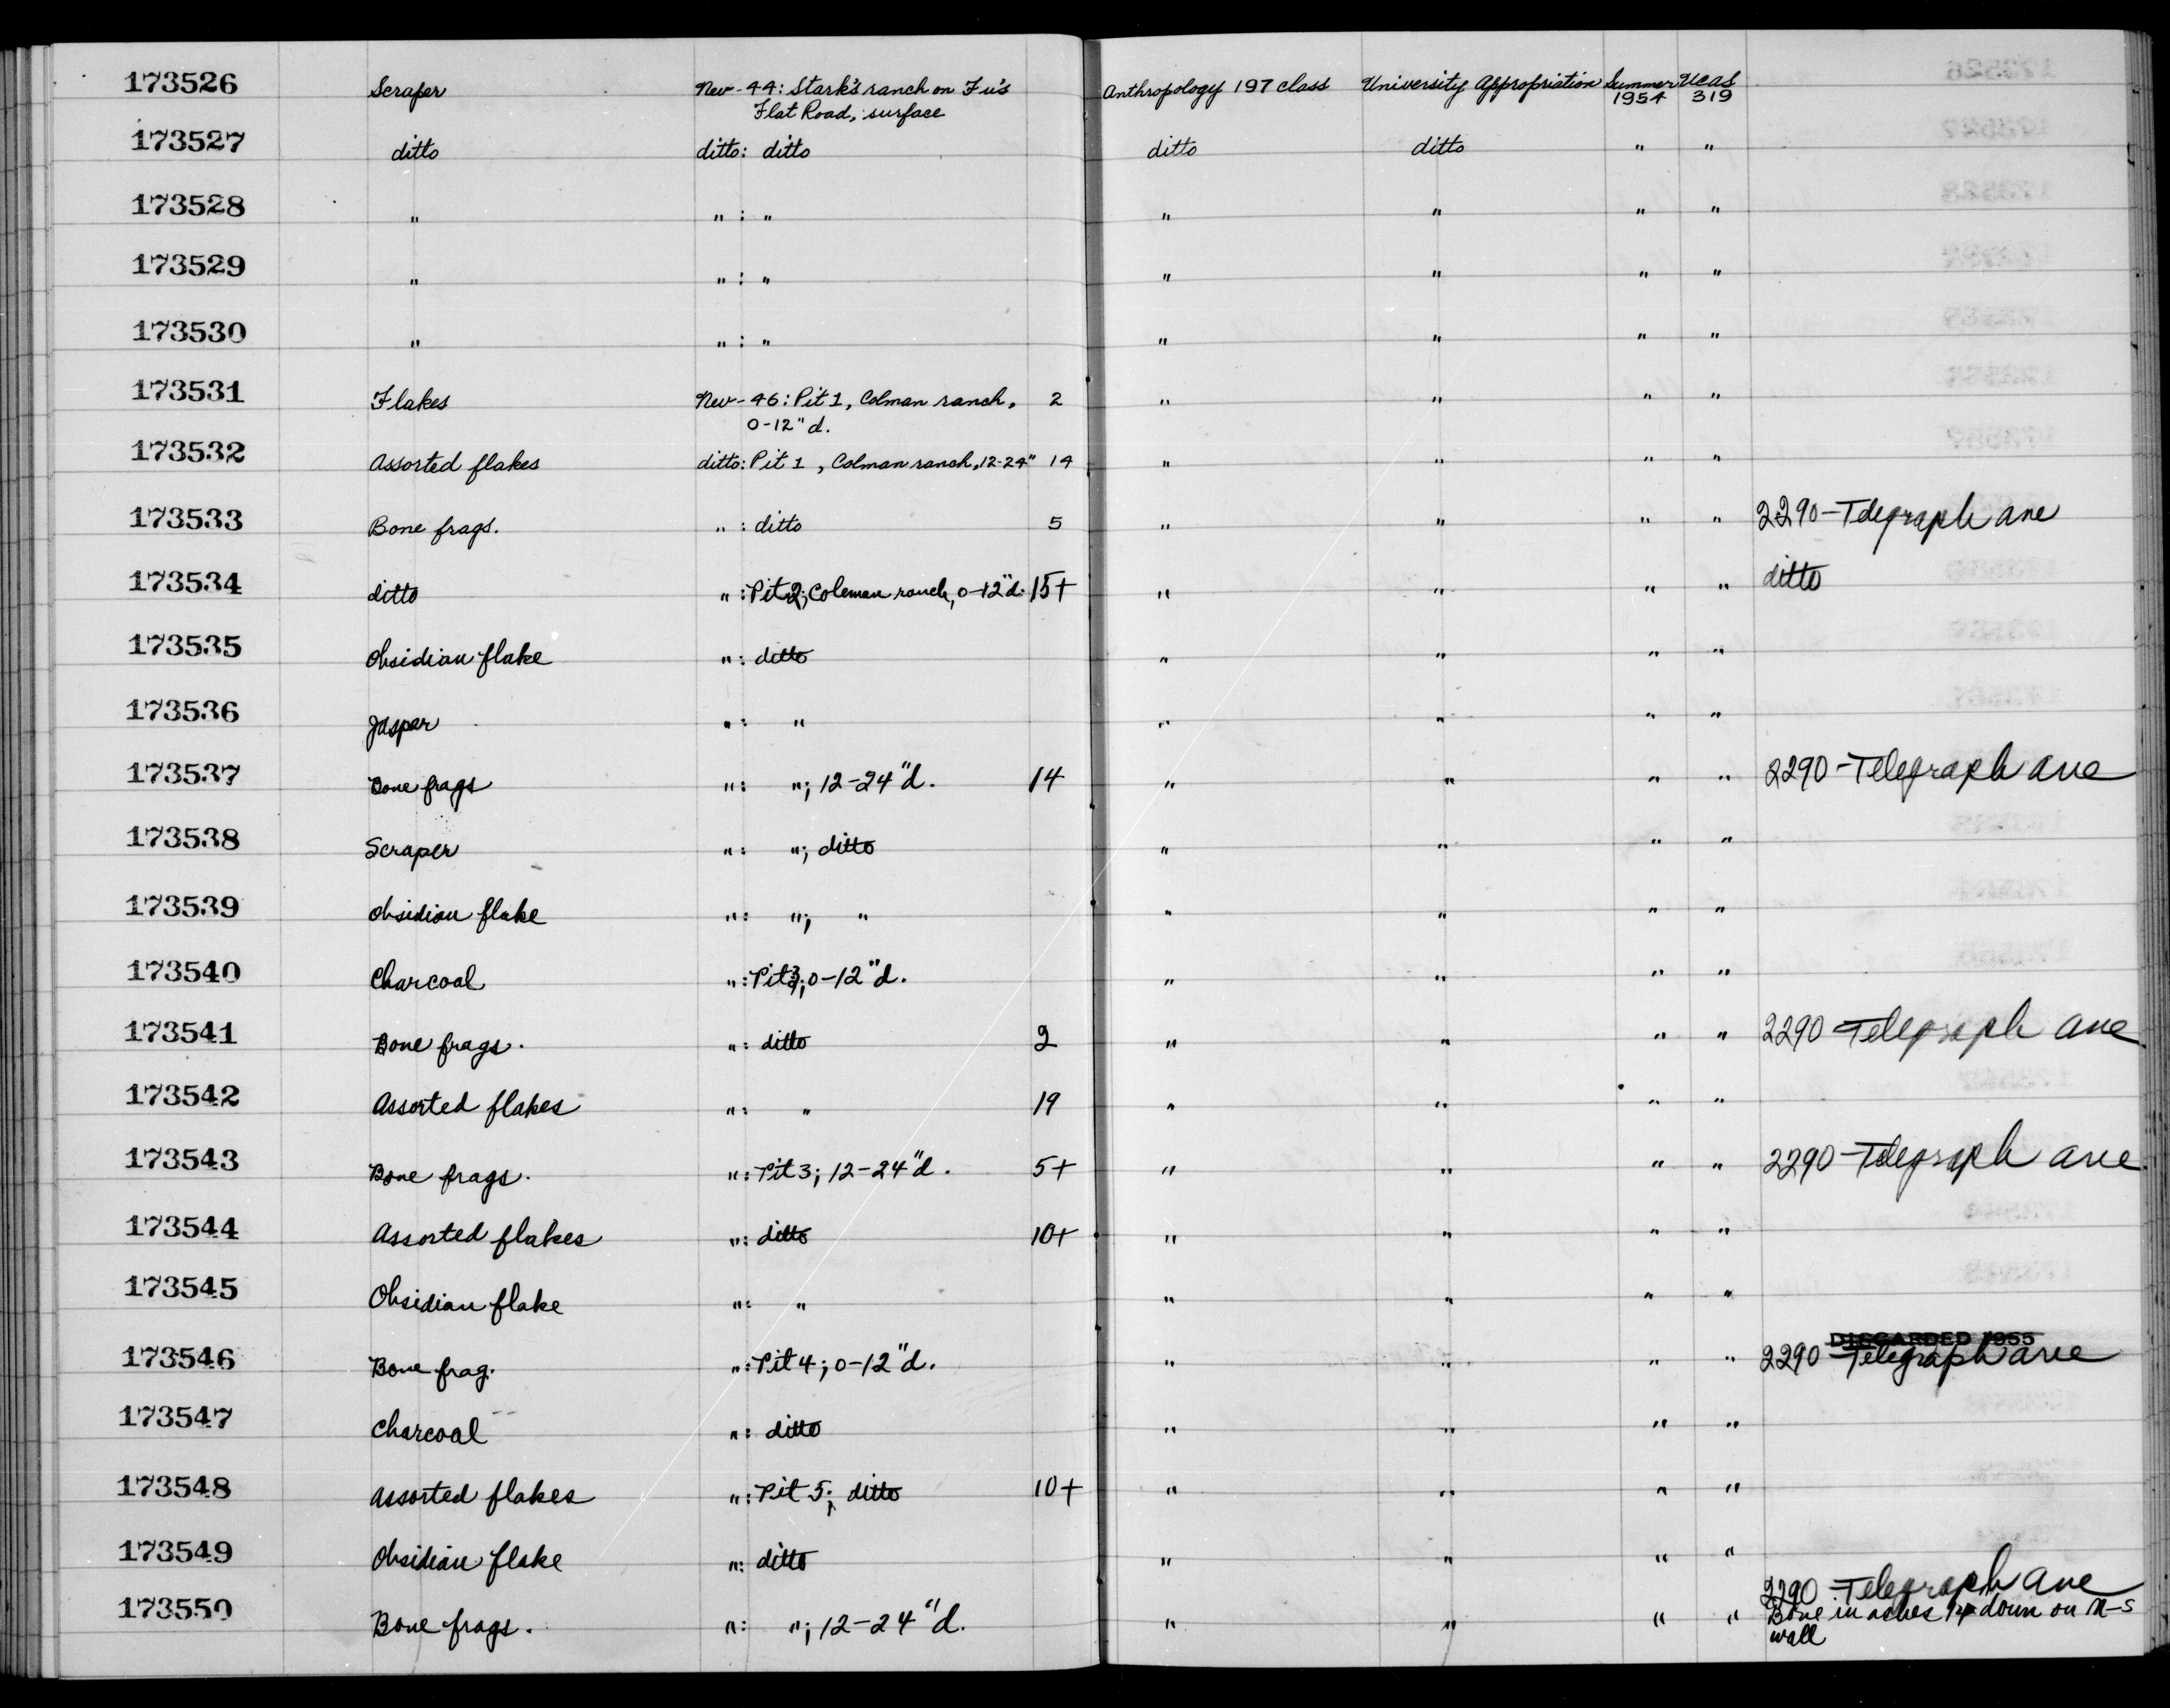 173526 Scraper Nev-44: Stark's ranch on Fu's Anthropology 197 class University Appropriation Summer UCAS
Flat Road, surface 1954 319
173527 ditto ditto: ditto ditto ditto " "
173528 " " : " " " " "
173529 " " : " " " " "
173530 " " : " " " " "
173531 Flakes Nev-46: Pit 1, Colman ranch, 2 " " " "
0-12" d.
173532 Assorted flakes ditto: Pit 1, Colman ranch, 12-24" 14 " " " "
173533 Bone frags. " : ditto 5 " " " " 2290-Telegraph Ave
173534 ditto " : Pit 2; Coleman ranch, 0-12"d. 15+ " " " " ditto
173535 Obsidian flake " : ditto " " " "
173536 Jasper " : " " " " "
173537 Bone frags " : "; 12-24"d. 14 " " " " 2290-Telegraph Ave
173538 Scraper " : "; ditto " " " "
173539 Obsidian flake " : "; " " " " "
173540 Charcoal " : Pit 3; 0-12"d. " " " "
173541 Bone frags. " : ditto 2 " " " " 2290 Telegraph Ave
173542 Assorted flakes " : " 19 " " " "
173543 Bone frags. " : Pit 3; 12-24"d. 5+ " " " " 2290-Telegraph Ave
173544 Assorted flakes " : ditto 10+ " " " "
173545 Obsidian flake " : " " " " "
DISCARDED 1955
173546 Bone frag. " : Pit 4; 0-12"d. " " " " 2290 Telegraph Ave
173547 Charcoal " : ditto " " " "
173548 Assorted flakes " : Pit 5; ditto 10+ " " " "
173549 Obsidian flake " : ditto " " " "
2290 Telegraph Ave
173550 Bone frags. " : "; 12-24"d. " " " " Bone in ashes down on N-S
wall